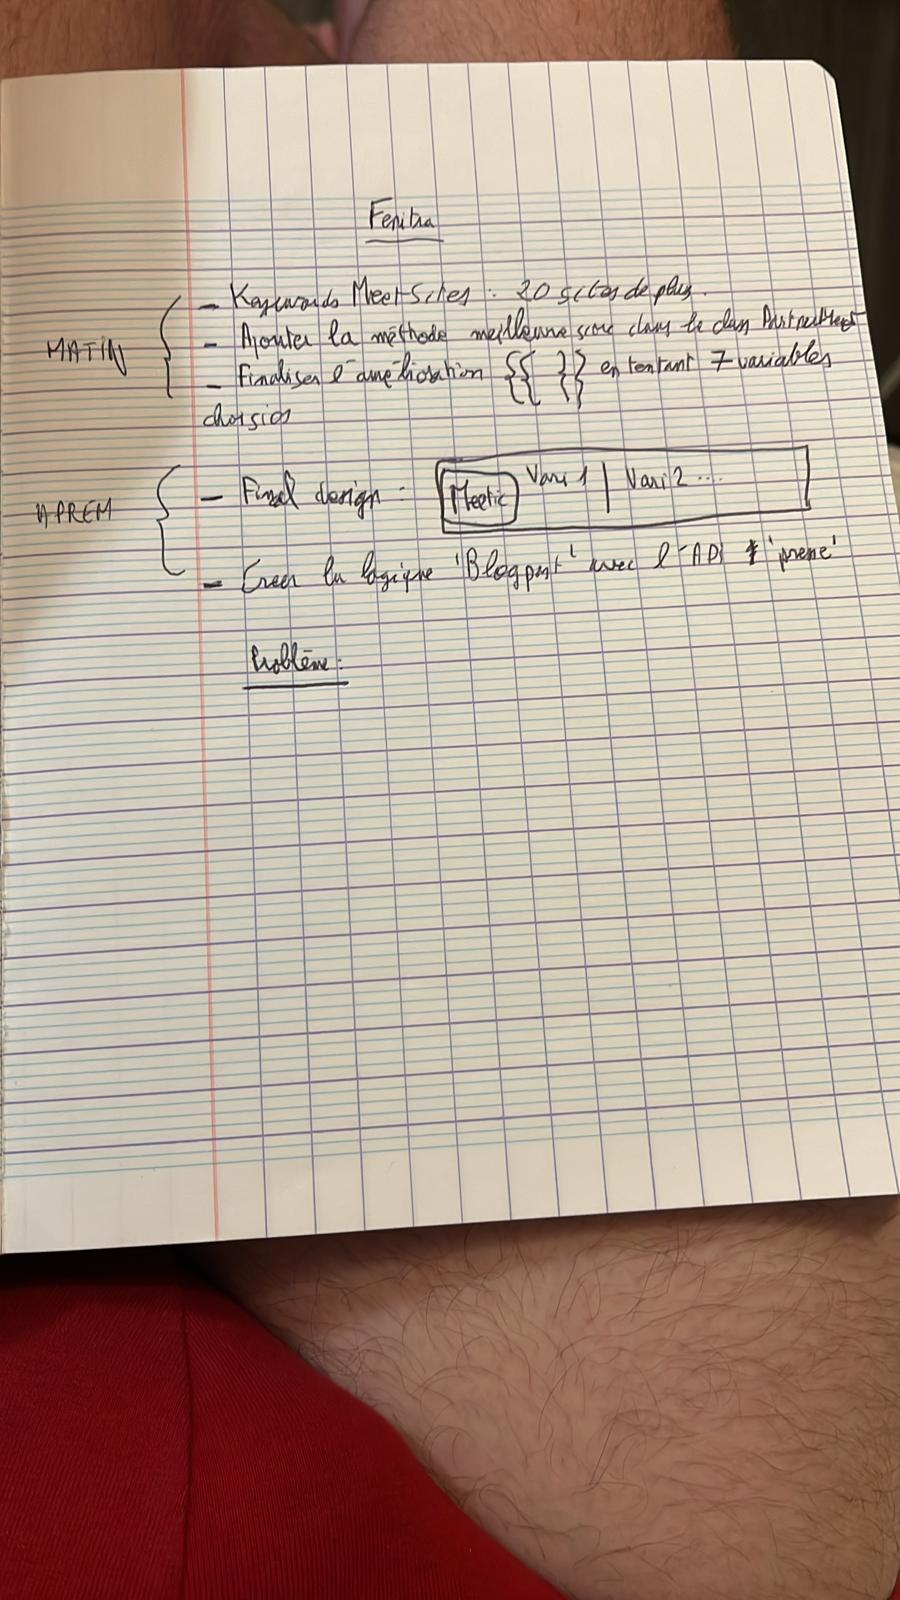 Fenitra
- Keywords Meet Sites : 20 sites de plus.
MATIN
- Ajouter la méthode meilleure score dans le
- Finaliser l'amélioration {{ }} en tentant 7 variables
choisies
APREM
- Final design : Meetic Vari 1 | Vari 2 ...
- Creer la logique 'Blogpost' avec l'API
Problème :